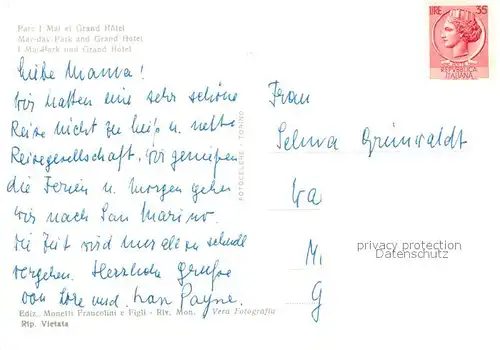 Parc I Mai et Grand Hôtel
May-day Park and Grand Hotel
I Mai-Park und Grand Hotel
LIRE 35
REPUBBLICA
ITALIANA
Liebe Mama!
Wir hatten eine sehr schöne
Reise nicht zu heiß u. nette
Reisegesellschaft, wir genießen
die Ferien u. morgen gehen
wir nach San Marino.
Die Zeit wird uns all zu schnell
vergehen. Herzliche Grüße
von Lore und
Frau
Selma Grünwaldt
Wa
M
G
FOTOCELERE - TORINO
privacy protection
Datenschutz
Ediz. Monetti Fraucolini e Figli - Riv. Mon. Vera Fotografia
Rip. Vietata